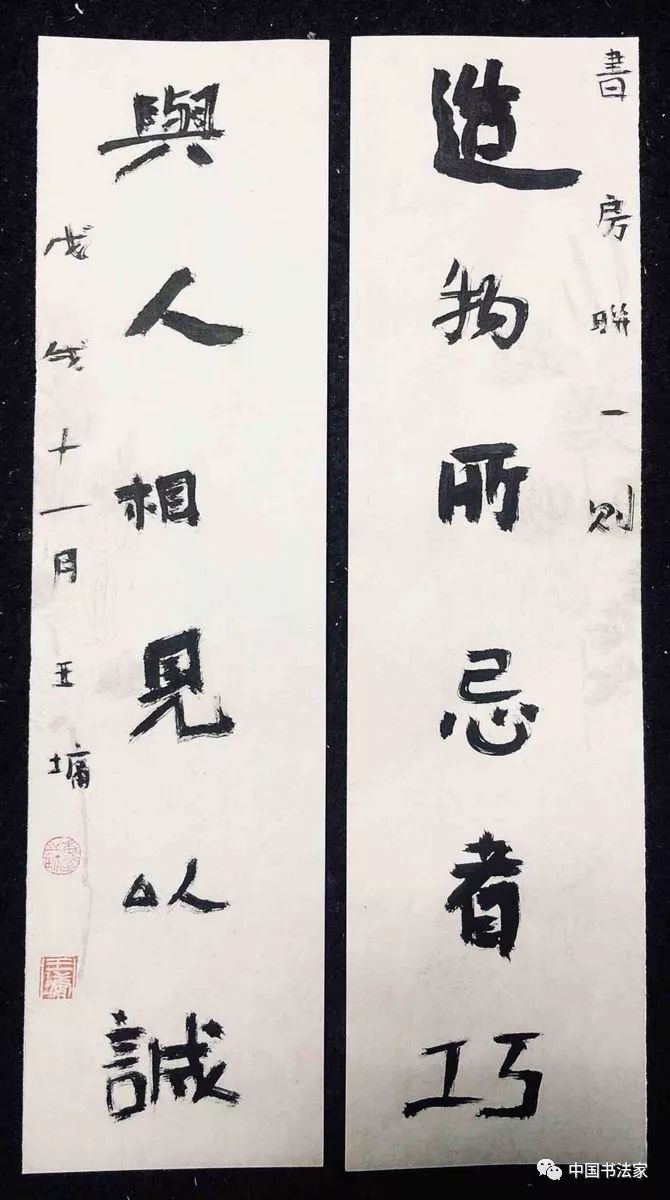 書房聯一則
造物所忌者巧
與人相見以誠
戊午十一月王墉
王墉
中国书法家